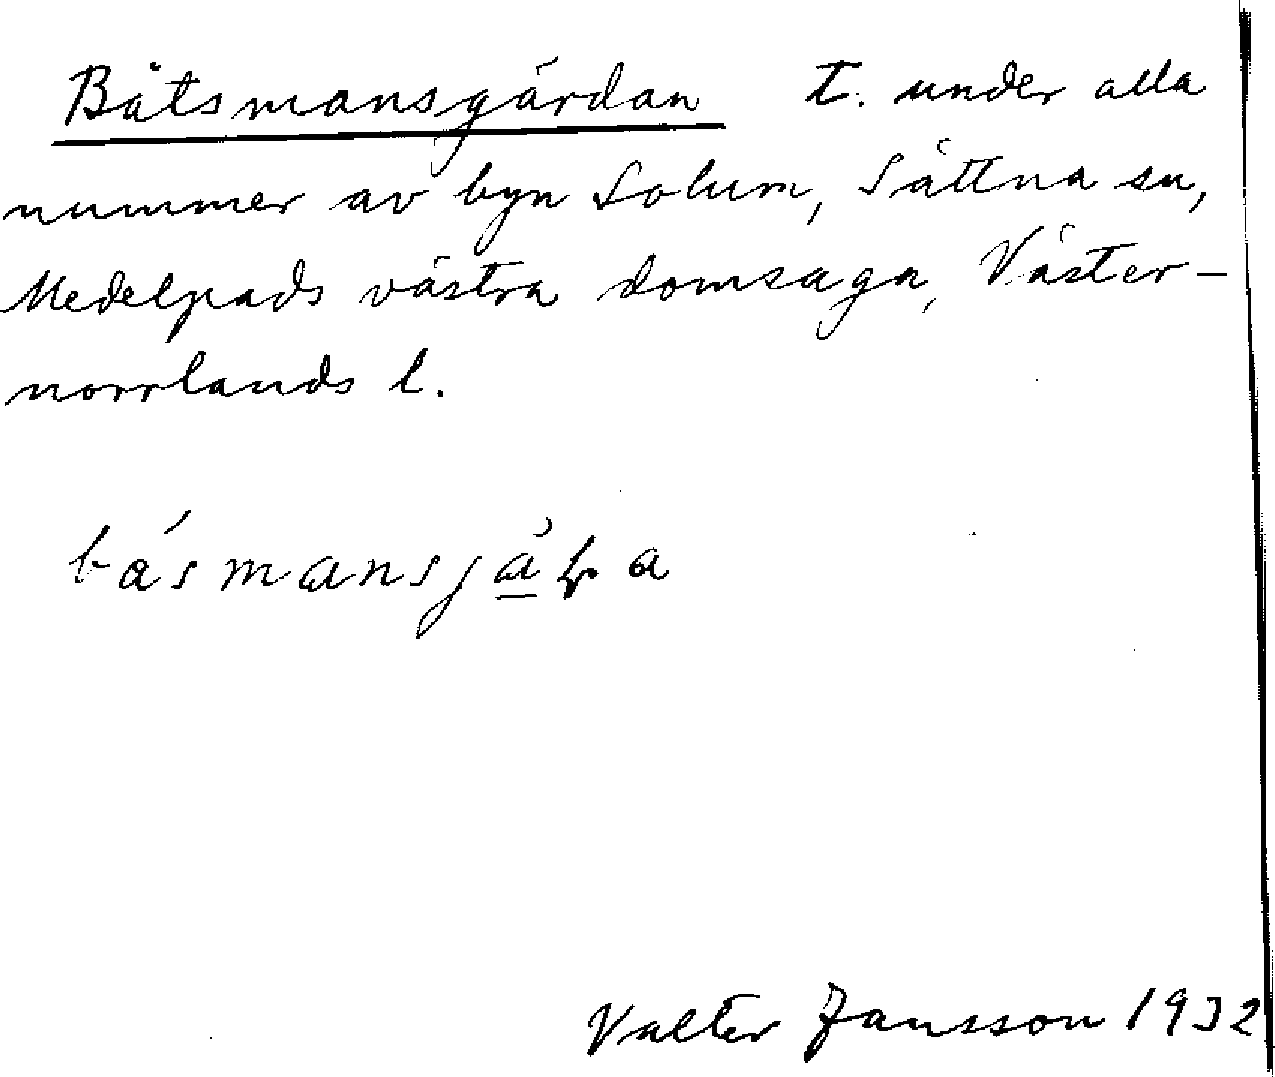 Båtsmansgärdan t. under alla
nummer av byn Solum, Sättna sn,
Medelpads västra domsaga, Väster-
norrlands l.
Valter Jansson 1932